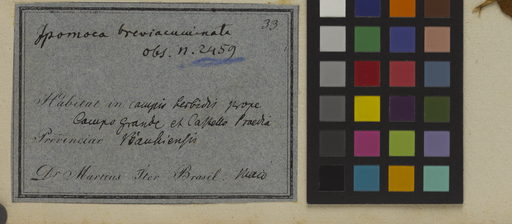 33
Ipomoea breviacuminata
obs. n. 2459
Habitat in campis herbidis prope
Campo grande et Castello Praedia
Provinciae Bahiensis
Dr Martius Iter Brasil. Maio